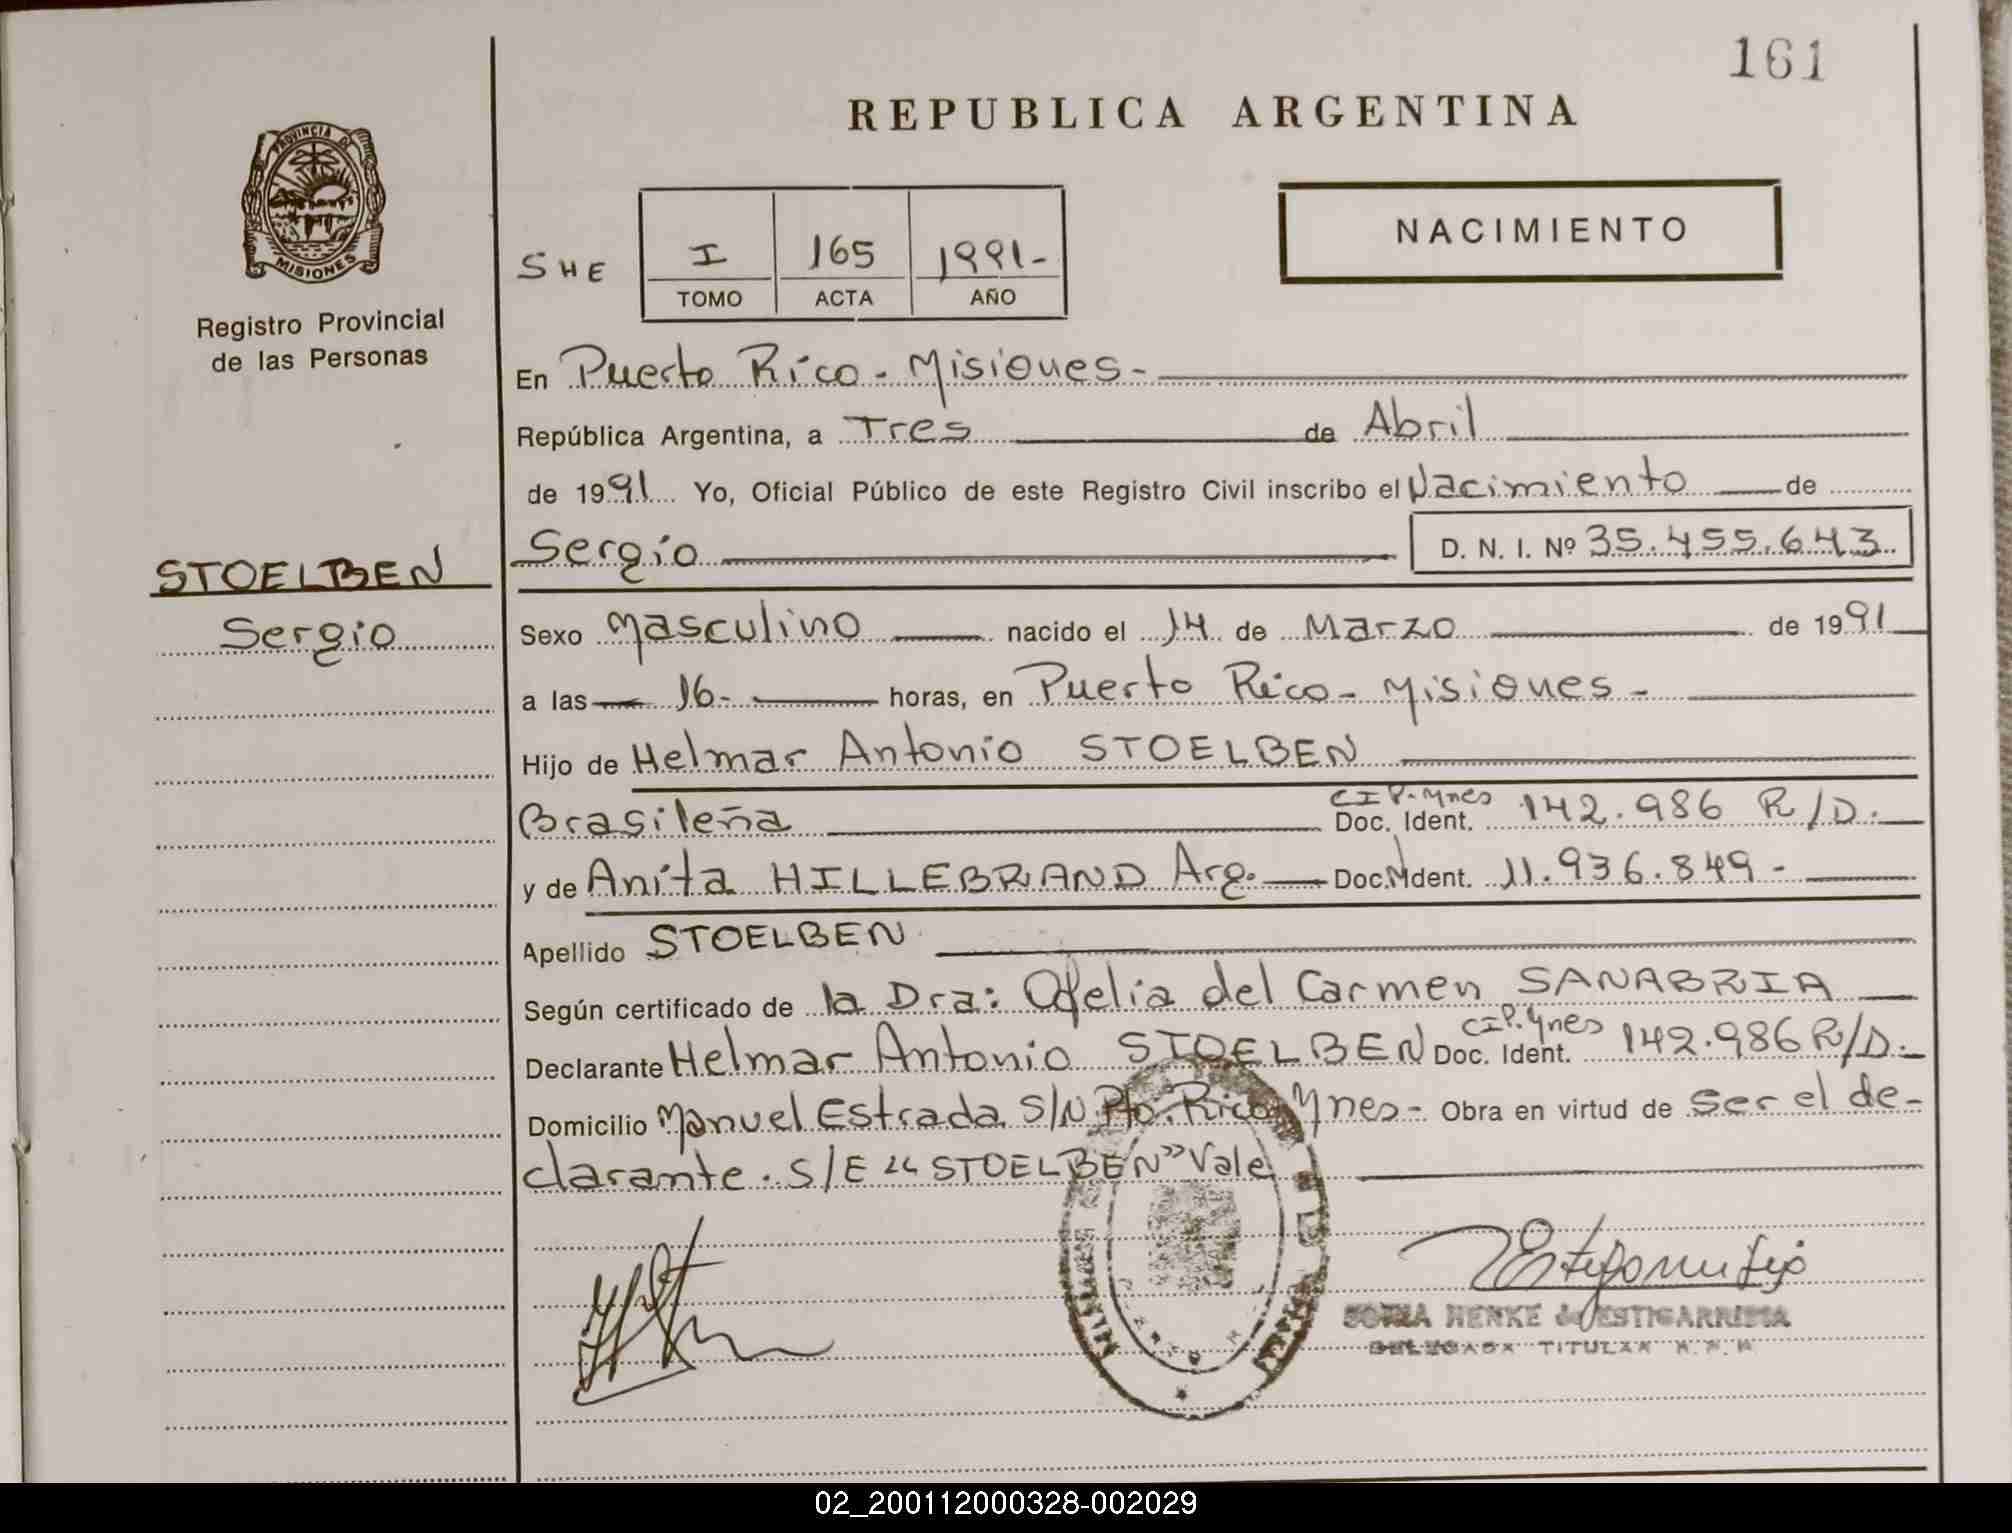 161
REPUBLICA ARGENTINA
PROVINCIA DE
MISIONES
Registro Provincial
de las Personas
NACIMIENTO
SHE
I 165 1991-
TOMO ACTA AÑO
En Puerto Rico - Misiones -
República Argentina, a Tres de Abril
de 1991 Yo, Oficial Público de este Registro Civil inscribo el Nacimiento de
Sergio D. N. I. Nº 35.455.643
STOELBEN
Sergio
Sexo Masculino nacido el 14 de Marzo de 1991
a las 16- horas, en Puerto Rico - Misiones -
Hijo de Helmar Antonio STOELBEN
Brasileña Doc. Ident. CIP. Mnes 142.986 R/D.
y de Anita HILLEBRAND Arg. Doc. Ident. 11.936.849-
Apellido STOELBEN
Según certificado de la Dra: Ofelia del Carmen SANABRIA
Declarante Helmar Antonio STOELBEN Doc. Ident. CIP. Mnes 142.986 R/D.
Domicilio Manuel Estrada S/N Pto. Rico Mnes - Obra en virtud de ser el de-
clarante. S/E "STOELBEN" Vale
HENKE de ESTIGARRIBIA
DELEGADA TITULAR
02_200112000328-002029